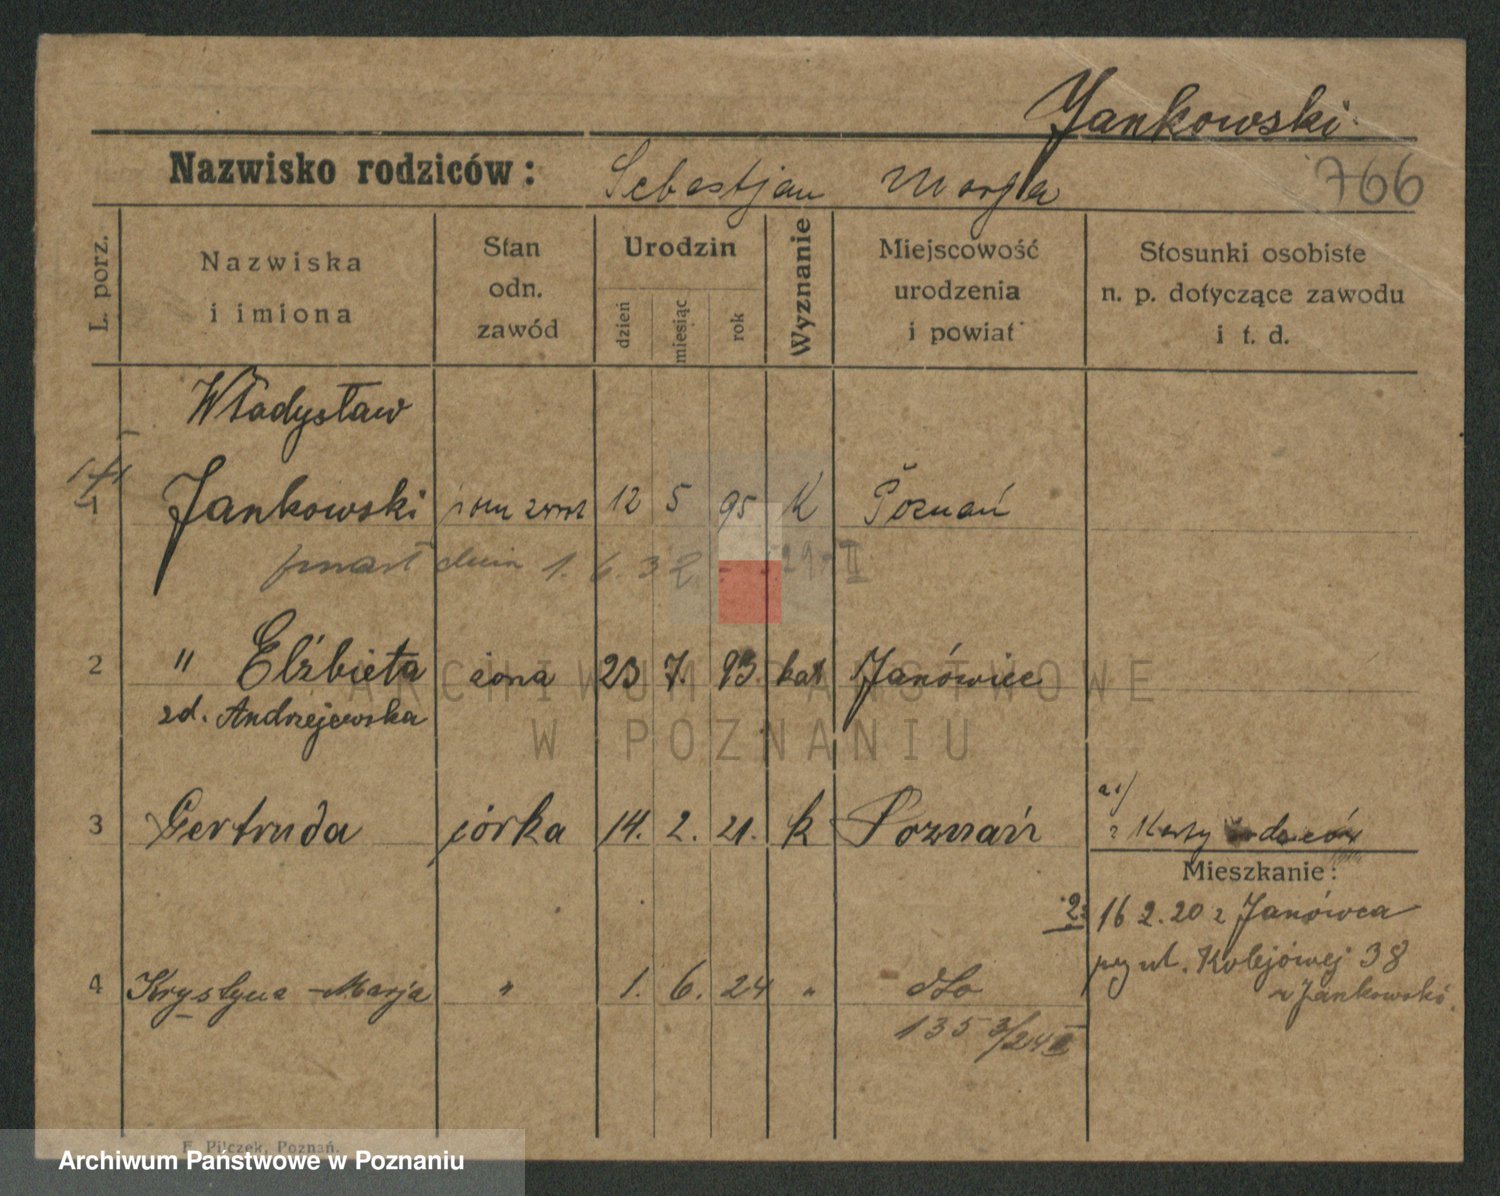 Jankowski
Nazwisko rodziców: Sebastjan Marja
766
L. porz.
Nazwiska
i imiona
Stan
odn.
zawód
Urodzin
dzień
miesiąc
rok
Wyznanie
Miejscowość
urodzenia
i powiat
Stosunki osobiste
n. p. dotyczące zawodu
i t. d.
Władysław
1 Jankowski 12 5 95 K Poznań
zmarł dnia 1. 6. 32
2 " Elżbieta żona 23 7. 93. kat Janówiec
zd. Andrzejewska
3 Gertruda córka 14. 2. 21. k Poznań
a./
z Karty
Mieszkanie:
23 16 2.20 z Janówca
przy ul. Kolejowej 38
u Jankowski
4 Krystyna-Marja " 1. 6. 24 " dto
135 3/24 II
ARCHIWUM PAŃSTWOWE
W POZNANIU
F. Pilczek, Poznań.
Archiwum Państwowe w Poznaniu